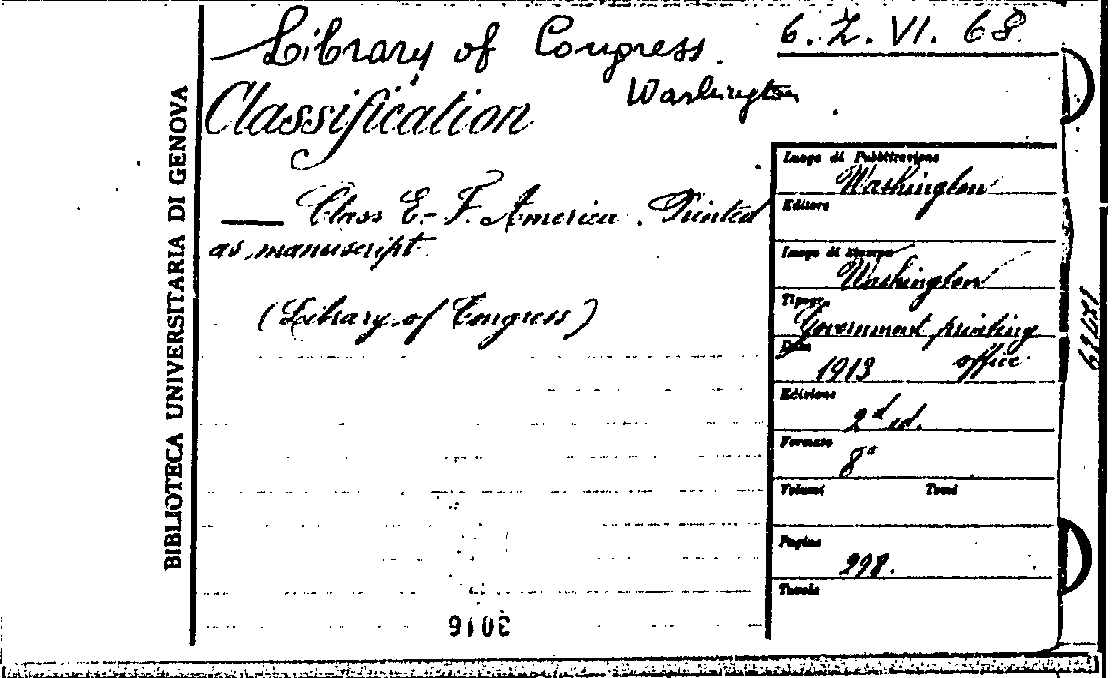 Library of Congress.
6. Z. VI. 68
Washington
Classification
BIBLIOTECA UNIVERSITARIA DI GENOVA
— Class E-F. America. Printed
as manuscript.
(Library of Congress)
Luogo di Pubblicazione
Washington
Editore
Luogo di stampa
Washington
Tipogr.
Government printing
office
Data
1913
Edizione
2d ed.
Formato
8°
Volumi Tomi
Pagine
298.
Tavole